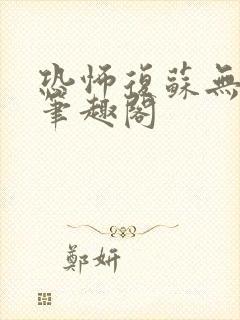 恐怖復蘇無
筆趣閣
鄭妍